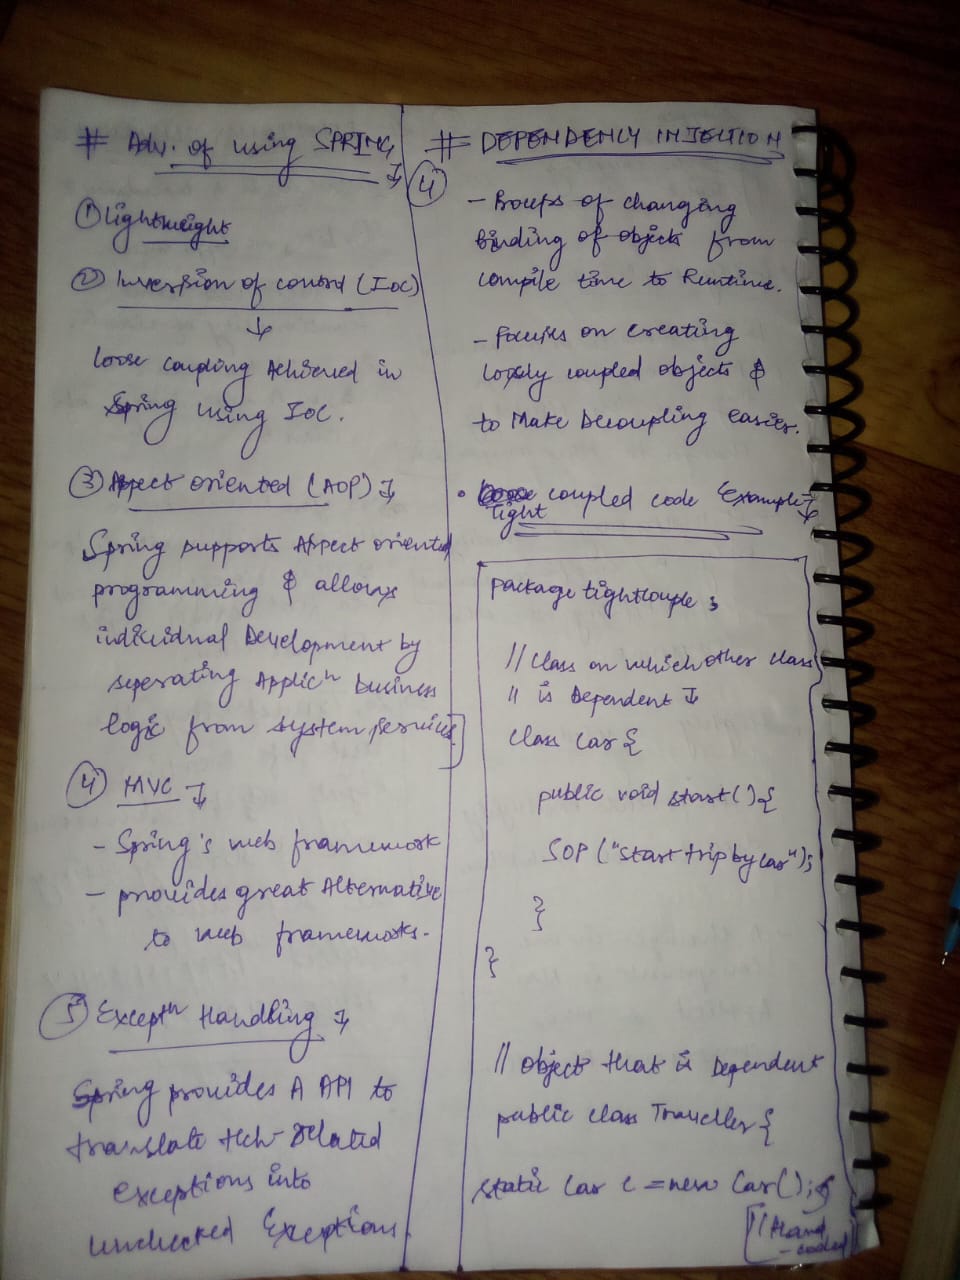 # Adv. of using SPRING ↓
① lightweight
② Inversion of control (IoC)
↓
loose coupling Achieved in
Spring using IoC.
③ Aspect oriented (AOP) ↓
Spring supports Aspect oriented
programming & allows
individual Development by
seperating Applicⁿ business
logic from system services.
④ MVC ↓
- Spring's web framework
- provides great Alternative
to web frameworks.
⑤ Exceptⁿ Handling ↓
Spring provides A API to
translate tech-related
exceptions into
unchecked Exceptions.
# DEPENDENCY INJECTION
④
- Process of changing
binding of objects from
compile time to Runtime.
- focuses on creating
loosely coupled objects &
to Make Decoupling easier.
• coupled code Example ↓
Tight
package tightcouple ;
// Class on which other class
// is Dependent ↓
class Car {
public void start() {
SOP ("start trip by car");
}
}
// Object that is Dependent
public class Traveller {
static Car c = new Car();
// Hand
- coded